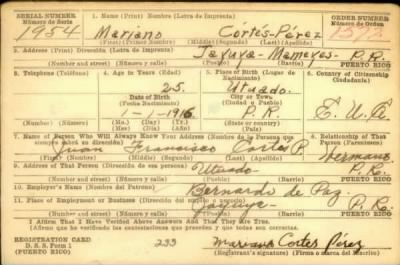 SERIAL NUMBER 1. Name (Print) Nombre (Letra de Imprenta) ORDER NUMBER
Número de Serie Número de Orden
1954 Mariano Cortés-Pérez
(First) (Primer Nombre) (Middle) (Segundo) (Last) (Apellido)
2. Address (Print) Dirección (Letra de Imprenta)
Jayuya - Mameyes - P.R.
PUERTO RICO
3. Telephone (Teléfono) 4. Age in Years (Edad) 5. Place of Birth (Lugar de Nacimiento) 6. Country of Citizenship (Ciudadanía)
25 Utuado.
Date of Birth City or Town
(Fecha Nacimiento) (Ciudad o Pueblo)
1-1-1916 P.R. E.U.A.
(Mo.) (Day) (Yr.) (State or country)
(Mes) (Día) (Año) (Estado o país)
7. Name of Person Who Will Always Know Your Address (Nombre de la Persona que siempre sabrá su dirección) 8. Relationship of That Person (Parentesco)
Juan Francisco Cortés P. Hermano
(First) (Primer Nombre) (Middle) (Segundo) (Last) (Apellido)
9. Address of That Person (Dirección de esa persona)
Utuado P.R.
PUERTO RICO
10. Employer's Name (Nombre del Patrono)
Bernardo de Paz
11. Place of Employment or Business (Dirección del empleo o negocio)
Jayuya P.R.
PUERTO RICO
I Affirm That I Have Verified Above Answers And That They Are True.
(Afirmo que he verificado las contestaciones que preceden y que todas son ciertas.)
REGISTRATION CARD
D. S. S. Form 1 233 Mariano Cortes Pérez
(Registrant's signature) (Firma o marca del Inscrito)